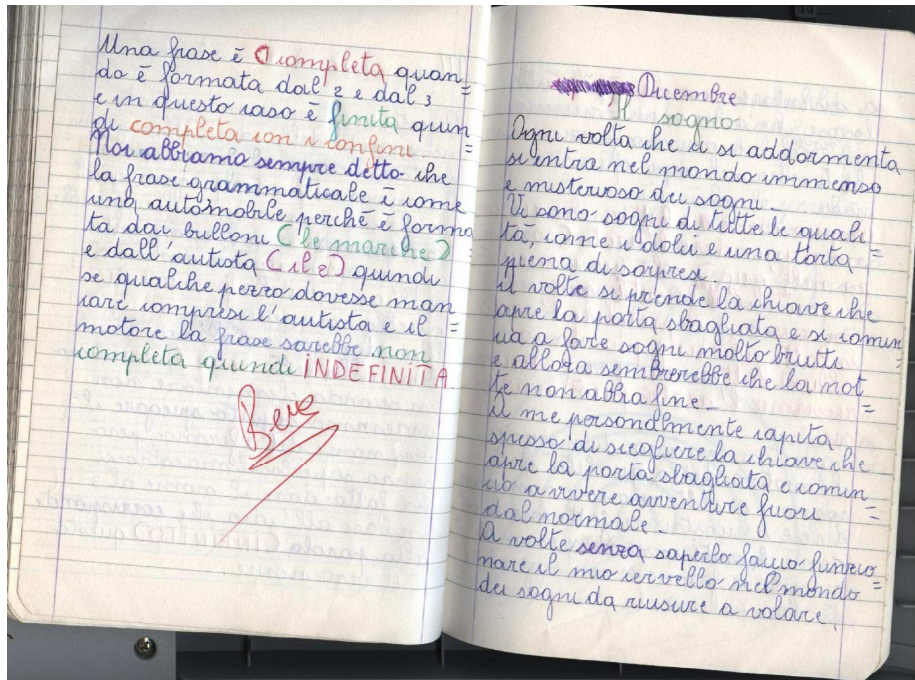 Una frase è completa quan=
do è formata dal 2 e dal 3
e in questo caso è finita quin
di completa con i confini =
Noi abbiamo sempre detto che
la frase grammaticale è come
una automobile perché è forma
ta dai bulloni (le marche) =
e dall'autista (il 2) quindi
se qualche pezzo dovesse man
care compresi l'autista e il =
motore la frase sarebbe non
completa quindi INDEFINITA.
Bene
Dicembre
Il sogno
Ogni volta che ci si addormenta
si entra nel mondo immenso
e misterioso dei sogni.
Vi sono sogni di tutte le quali
tà, come i dolci e una torta =
piena di sorprese
A volte si prende la chiave che
apre la porta sbagliata e si comin
cia a fare sogni molto brutti =
e allora sembrerebbe che la not
te non abbia fine. =
A me personalmente capita
spesso di scegliere la chiave che
apre la porta sbagliata e comin
cio a vivere avventure fuori =
dal normale.
A volte senza saperlo faccio funzio
nare il mio cervello nel mondo =
dei sogni da riuscire a volare,